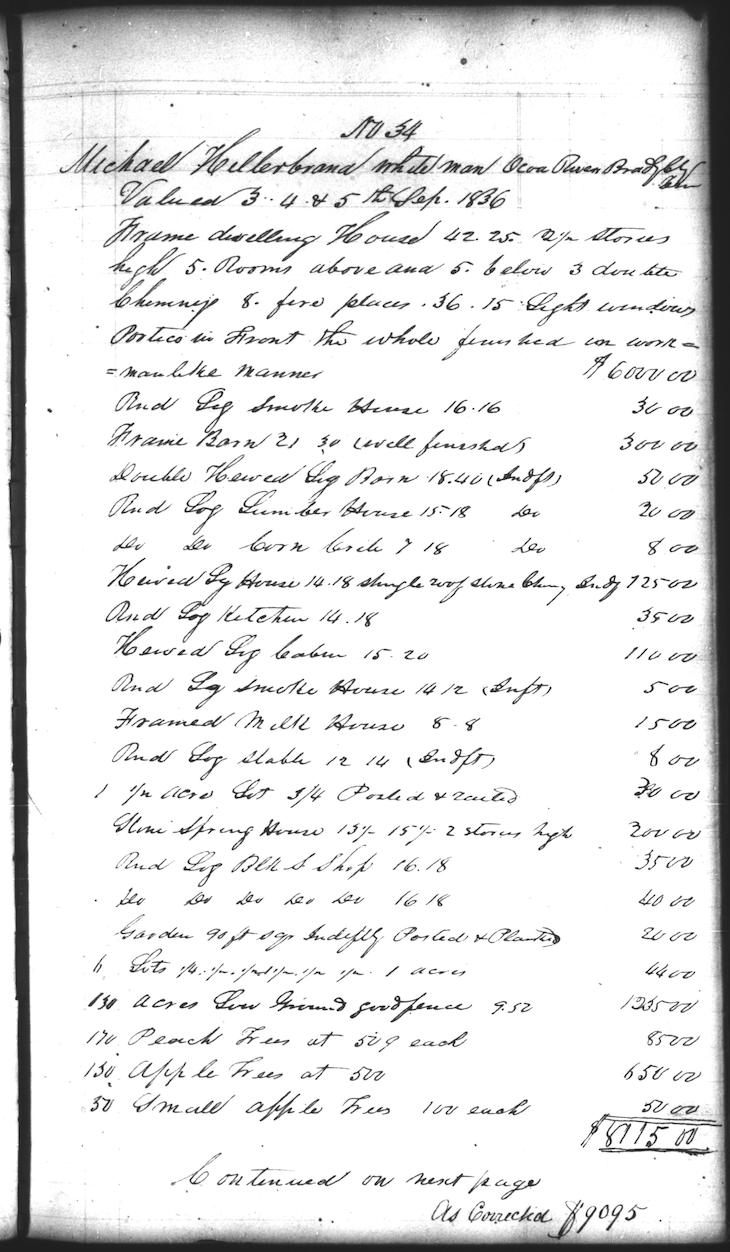 No 34
Michael Hellerbrand white man Ocoa River Brady Cty Ten
Valued 3. 4. & 5th Sep. 1836
Frame dwelling House 42.25. 2 1/2 stories
high 5. Rooms above and 5. below 3 double
Chimnys 8. fire places. 36. 15 Light windows
Portico in Front the whole finished in work=
=manlike manner $6000 00
Rnd Log Smoke House 16.16 30 00
Frame Barn 21 30 (well finished) 300 00
Double Hewed Log Barn 18.40 (Indft) 50 00
Rnd Log Lumber House 15-18 Do 20 00
Do Do Corn Crib 7 18 Do 8 00
Hewed Lg House 14.18 shingle roof stone Chimy Indf 125 00
Rnd Log Ketchen 14.18 35 00
Hewed Log Cabin 15.20 110 00
Rnd Lg Smoke House 14 12 (Inft) 5 00
Framed Milk House 8-8 15 00
Rnd Log stable 12 14 (Indft) 8 00
1 1/2 acre Lot 3/4 Posted & railed 30 00
Stone Spring House 13 1/2 15 1/2 2 stories high 200 00
Rnd Log Blk S Shop 16.18 35 00
Do Do Do Do Do 16 18 40 00
Garden 90 ft sqr Indiftly Posted & Planked 20 00
6 Lots 1/4. 1/2. 1/2 1/2. 1/2 1/2. 1 acres 44 00
130 acres Low Ground good fence 9.50 1235 00
170 Peach Trees at 50 ¢ each 85 00
130 Apple Trees at 500 650 00
50 Small apple Trees 100 each 50 00
$8115 00
Continued on next page
As Corrected $9095